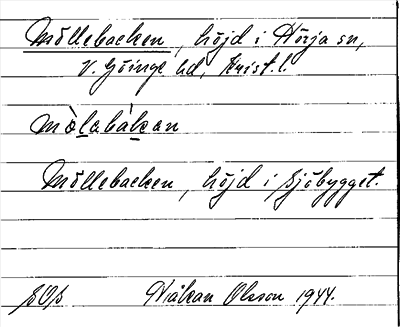 Möllebacken, höjd i Hörja sn,
V. Göinge hd, Krist. l.
mòlabàkan
Möllebacken, höjd i Sjöbygget.
Håkan Olsson 1944.